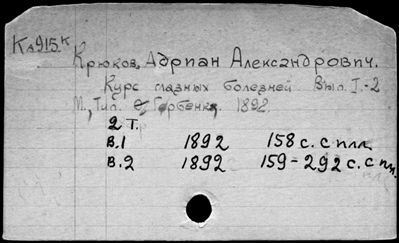 Кл915к
Крюков, Адриан Александрович.
Курс глазных болезней. Вып. I-2
М., Тип. Гербенка, 1892.
2 т.
В.1 1892 158 с. с илл.
В.2 1892 159-292 с. с илл.